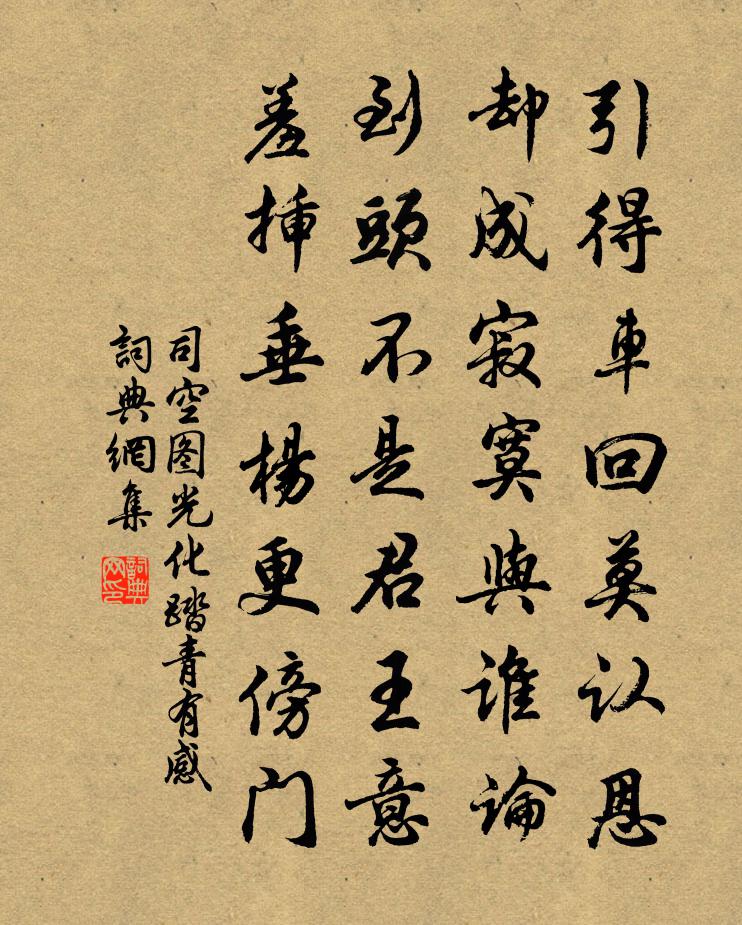 引得車回莫认恩
却成寂寞與誰論
到頭不是君王意
羞插垂楊更傍門
司空图光化踏青有感
詞典網集
詞典網印